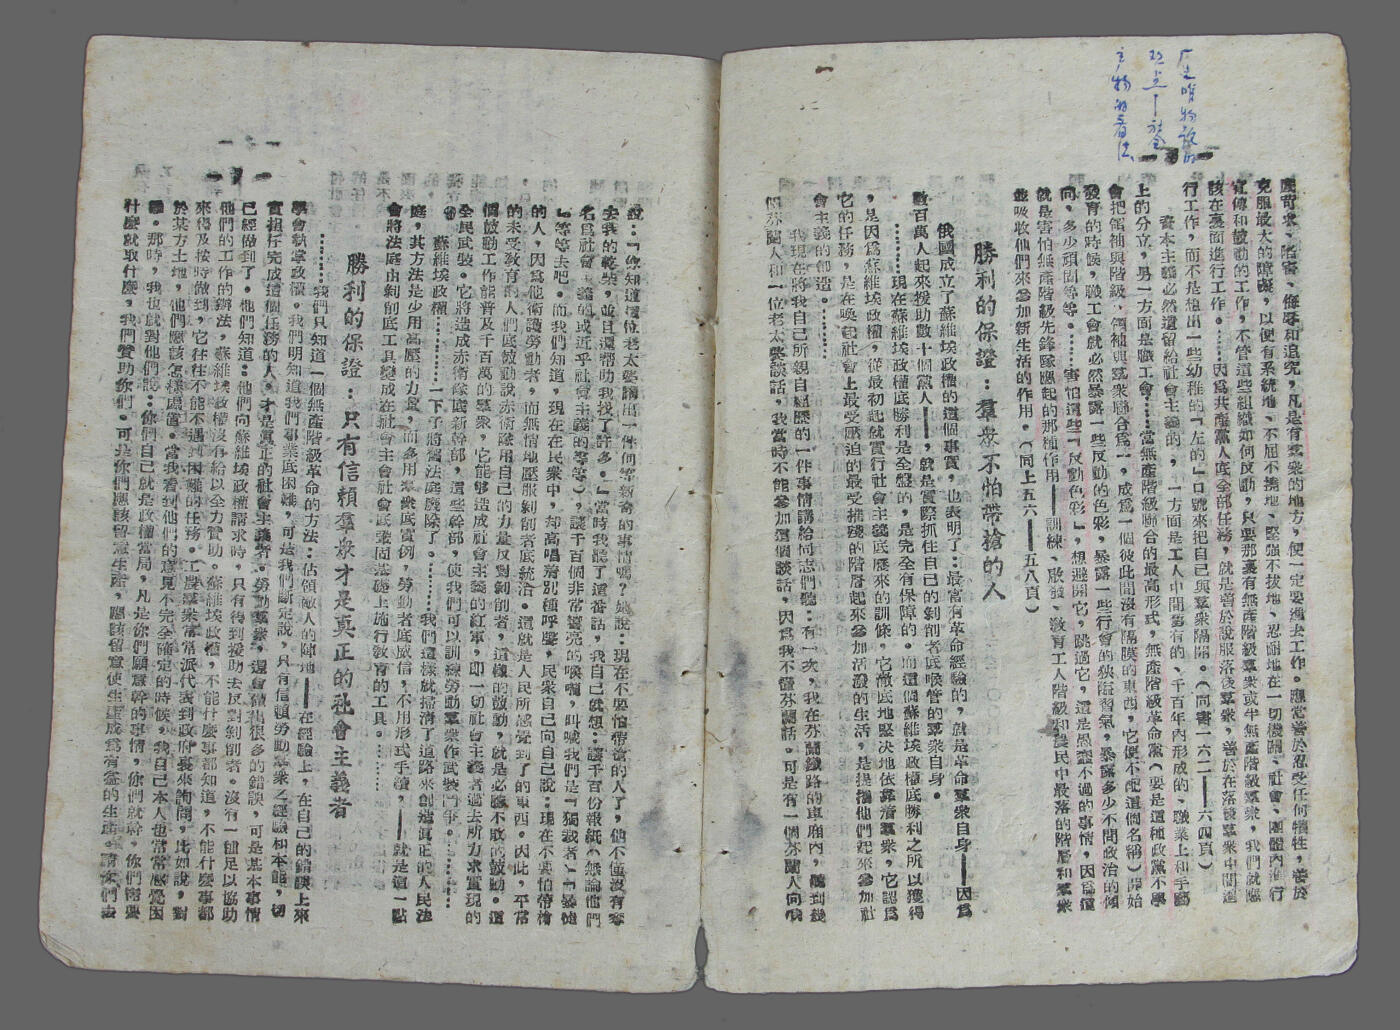 厂史唯物論的
观点—社会
产物的看法
應苛求、陷害、侮辱和追究,凡是有羣衆的地方,便一定要進去工作。應當善於忍受任何犧牲,善於
克服最大的障礙,以便有系統地、不屈不撓地、堅強不拔地、忍耐地在一切機關、社會、團體內進行
宣傳和鼓動的工作,不管這些組織如何反動,只要那裏有無產階級羣衆或半無產階級羣衆,我們就應
該在裏面進行工作。……因爲共產黨人底全部任務,就是善於說服落後羣衆,善於在落後羣衆中間進
行工作,而不是想出一些幼稚的『左的』口號來把自己與羣衆隔開。(同書一六二——六四頁)
資本主義必然遺留給社會主義的,一方面是工人中間舊有的、千百年內形成的、職業上和手藝
上的分立,另一方面是職工會……當無產階級聯合的最高形式,無產階級革命黨(要是這種政黨不學
會把領袖與階級、領袖與羣衆聯合爲一,成爲一個彼此間沒有隔膜的東西,它便不配這個名稱)開始
發育的時候,職工會就必然暴露一些反動的色彩,暴露一些行會的狹隘習氣,暴露多少不問政治的傾
向,多少頑固等等。……害怕這些『反動色彩』,想避開它,跳過它,這是愚蠢不過的事情,因爲這
就是害怕無產階級先鋒隊應起的那種作用——訓練、啟發、教育工人階級和農民中最落的階層和羣衆
並吸收他們來參加新生活的作用。(同上五六——五八頁)
勝利的保證:羣衆不怕帶搶的人
俄國成立了蘇維埃政權的這個事實,也表明了:最富有革命經驗的,就是革命羣衆自身——因爲
數百萬人起來援助數十個黨人——,就是實際抓住自己的剝削者底喉管的羣衆自身。
……現在蘇維埃政權底勝利是全盤的,是完全有保障的。而這個蘇維埃政權底勝利之所以獲得
,是因爲蘇維埃政權,從最初起就實行社會主義底歷來的訓條,它澈底地堅決地依靠着羣衆,它認爲
它的任務,是在喚起社會上最受壓迫的最受摧殘的階層起來參加活潑的生活,是提攜他們起來參加社
會主義的創造。……
我現在將我自己所親自經歷的一件事情講給同志們聽:有一次,我在芬蘭鐵路的車廂內,聽到幾
個芬蘭人和一位老太婆談話,我當時不能參加這個談話,因爲我不懂芬蘭話。可是有一個芬蘭人向我
說:『你知道這位老太婆講出一件何等新奇的事情嗎?她說:現在不要怕帶搶的人了,他不僅沒有奪
去我的乾柴,並且還幫助我找了許多。』當時我聽了這番話,我自己就想:讓千百份報紙(無論他們
名爲社會主義的或近乎社會主義的等等),讓千百個非常響亮的喉嚨,叫喊我們是『獨裁者』『暴徒
』等等去吧。而我們知道,現在在民衆中,却高唱着別種呼聲,民衆自己向自己說:現在不要怕帶槍
的人,因爲他術護勞動者,而無情地壓服剝削者底統治。這就是人民所感覺到了的東西。因此,平常
的未受教育的人們底鼓動說赤衛隊用自己的力量反對剝削者,這樣的鼓動,就是必勝不敗的鼓動。這
個鼓動工作能普及千百萬的羣衆,它能夠造成社會主義的紅軍,即一切社會主義者過去所力求實現的
全民武裝。它將造成赤衛隊底新幹部,這些幹部,使我們可以訓練勞動羣衆作武裝鬥爭。……
蘇維埃政權……一下子將舊法庭廢除了。……我們這樣就掃清了道路來創造眞正的人民法
庭,其方法是少用高壓的力量,而多用羣衆底實例,勞動者底威信,不用形式手續,——就是這一點
會將法庭由剝削底工具變成在社會主會社會底鞏固基礎上施行教育的工具。……
勝利的保證:只有信賴羣衆才是真正的社會主義者
……我們只知道一個無產階級革命的方法:佔領敵人的陣地——在經驗上,在自己的錯誤上來
學會執掌政權。我們明知道我們事業底困難,可是我們斷定說,只有信賴勞動羣衆之經驗和本能,切
實担任完成這個任務的人,才是眞正的社會主義者。勞動羣衆,還會做出很多的錯誤,可是基本事情
已經做到了。他們知道:他們向蘇維埃政權請求時,只有得到援助去反對剝削者。沒有一個足以協助
他們的工作的辦法,蘇維埃政權沒有給以全力贊助。蘇維埃政權,不能什麼事都知道,不能什麼事都
來得及按時做到,它往往不能不遇到困難的任務。工農羣衆常派代表到政府裏來詢問,比如說,對
於某方土地,他們應該怎樣處置。當我看到他們的意見不完全確定的時候,我自己本人也常常感覺困
難。那時,我也就對他們說:你們自己就是政權當局,凡是你們願意幹的事情,你們就幹,你們需要
什麼就取什麼,我們贊助你們。可是你們應該留意生產,應該留意使生產成爲有益的生產。請你們去